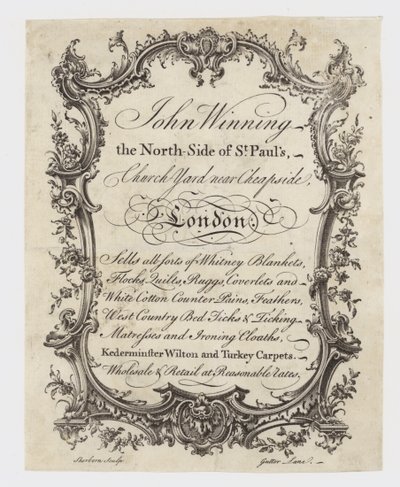 John Winning
the North-Side of St. Paul's,
Church Yard near Cheapside,
London:
Sells all sorts of Whitney Blankets,
Flocks, Quilts, Ruggs, Coverlets and
White Cotton Counter Pains, Feathers,
West Country Bed Ticks & Ticking
Matresses and Ironing Cloaths,
Kederminster Wilton and Turkey Carpets.
Wholesale & Retail at Reasonable Rates.
Sherborn Sculp.
Gutter Lane.